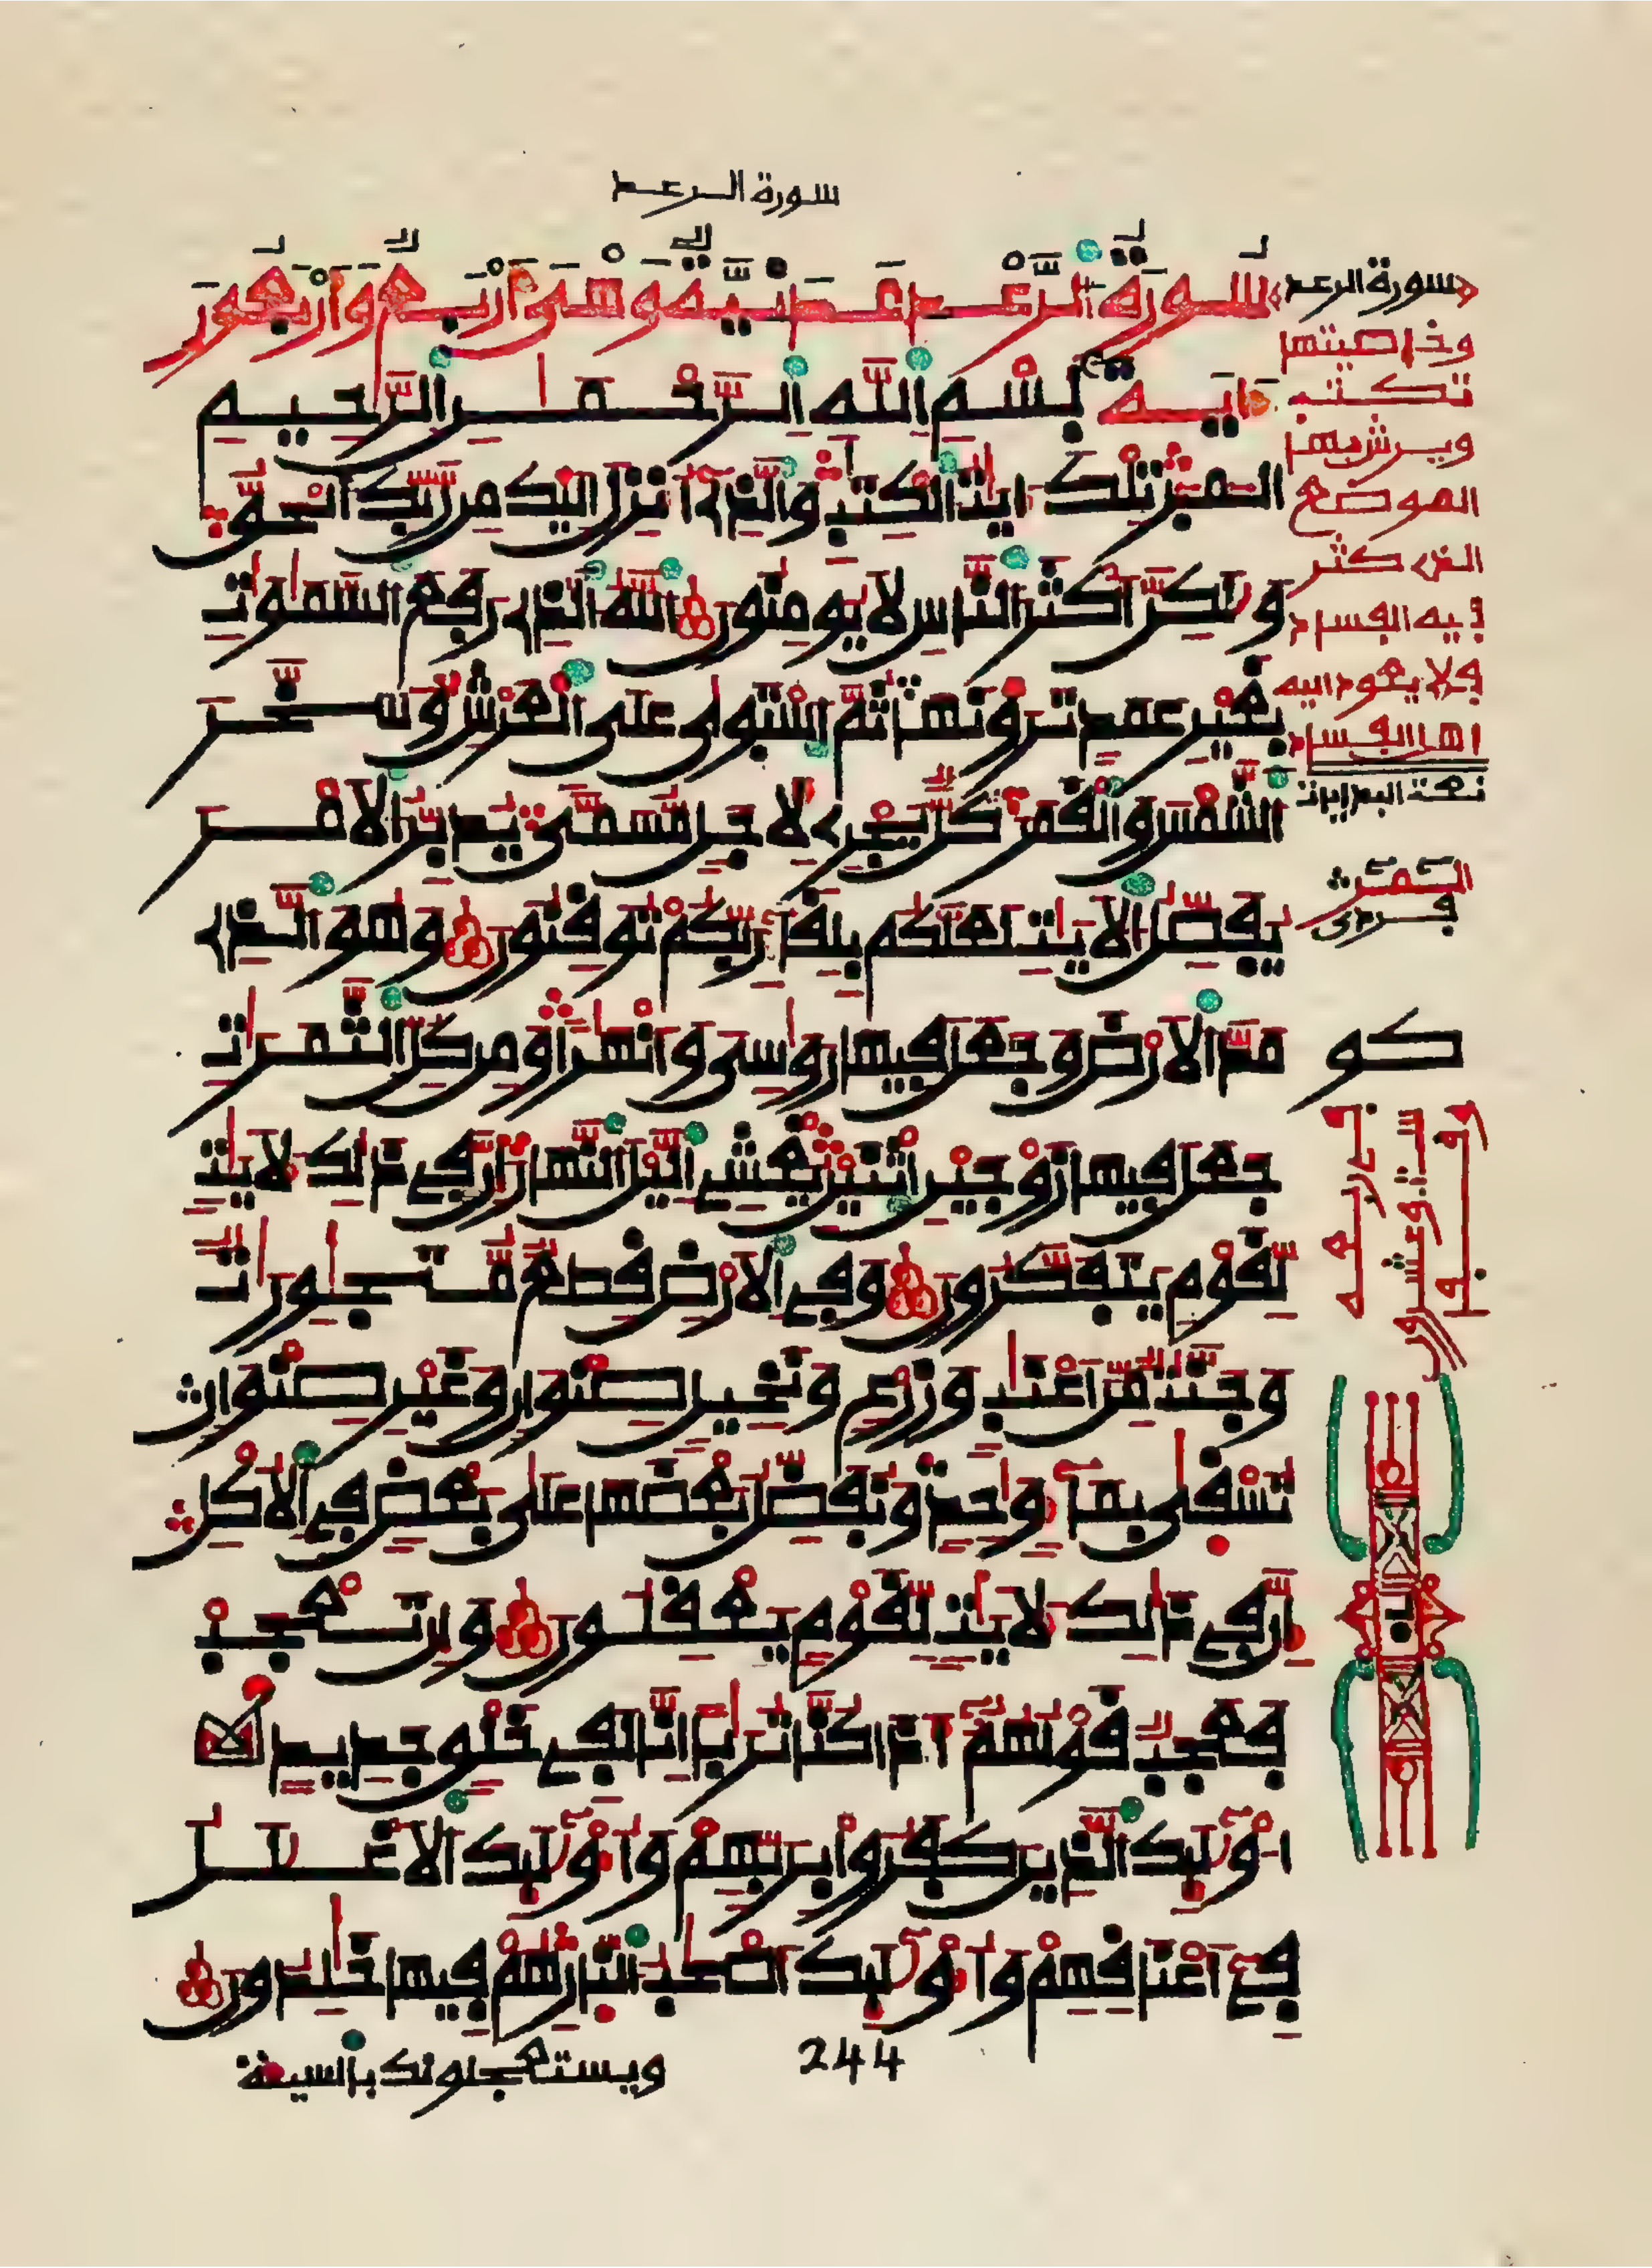 سورة الرعد
سورة الرعد مدنية وهي أربع وأربعون
ءاية بسم الله الرحمن الرحيم
المر تلك ءايت الكتب والذي أنزل إليك من ربك الحق
ولكن أكثر الناس لا يومنون الله الذي رفع السموت
بغير عمد ترونها ثم استوى على العرش وسخر
الشمس والقمر كل يجري لأجل مسمى يدبر الأمر
يفصل الأيت لعلكم بلقاء ربكم توقنون وهو الذي
مد الأرض وجعل فيها روسي وأنهرا ومن كل الثمرات
جعل فيها زوجين اثنين يغشي اليل النهار إن في ذلك لأيت
لقوم يتفكرون وفي الأرض قطع متجورات
وجنت من أعنب وزرع ونخيل صنوان وغير صنوان
تسقى بماء وحد ونفضل بعضها على بعض في الأكل
إن في ذلك لأيت لقوم يعقلون وإن تعجب
فعجب قولهم أءذا كنا تربا إنا لفي خلق جديد
أولئك الذين كفروا بربهم وأولئك الأغلل
في أعناقهم وأولئك أصحب النار هم فيها خلدون
244
ويستعجلونك بالسيئة
سورة الرعد
وخاصيتها
تكتب
ويرش بها
الموضع
الذي كثر
فيه الفساد
فلا يعود إليه
أهل الفساد
كو